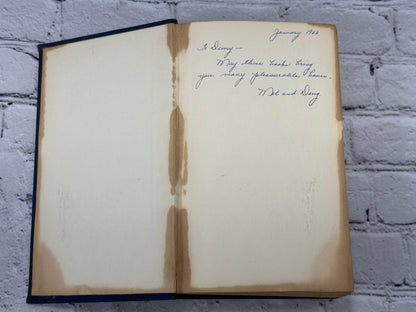 January 1966
To Dewy—
May these books bring
you many pleasurable hours.
Mel and Doug